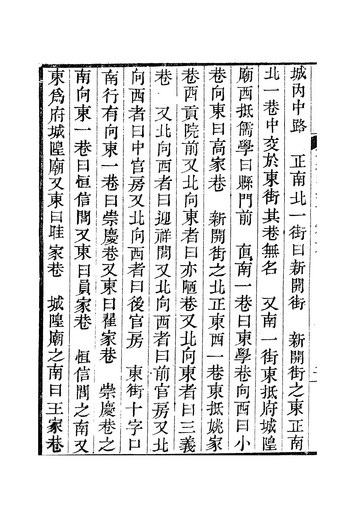 城內中路　正南北一街曰新開街　新開街之東正南
北一巷中交於東街其巷無名　又南一街東抵府城隍
廟西抵儒學曰縣門前　直南一巷曰東學巷向西曰小
巷向東曰高家巷　新開街之北正東西一巷東抵姚家
巷西貢院前又北向東者曰亦陋巷又北向東者曰三義
巷　又北向西者曰迎祥閭又北向西者曰前官房又北
向西者曰中官房又北向西者曰後官房　東街十字口
南行有向東一巷曰崇慶巷又東曰翟家巷　崇慶巷之
南向東一巷曰恒信閭又東曰員家巷　恒信閭之南又
東爲府城隍廟又東曰眭家巷　城隍廟之南曰王家巷